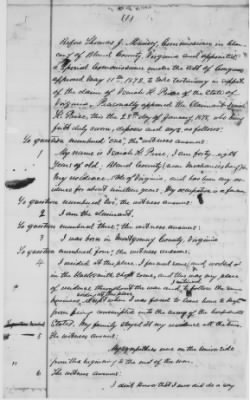 (1)
Before Thomas J. Commissioner in
County, Virginia and appointed
a Special Commissioner under the act of Congress
approved May 11th, 1872, to take testimony in support
of the claim of H. Price of the State of
Virginia. Personally appeared the Claimant
H. Price, this the 28th day of January 187, who being
first duly sworn, deposes and says as follows:
To question numbered one, the witness answers:
1 My name is H. Price, I am forty eight
years of age, County
My residence State of Virginia, and has been my
dence for about nineteen years. My occupation is a farmer
To question numbered two, the witness answers:
2 I am the claimant.
To question numbered three, the witness answers:
3 I was born in Montgomery County, Virginia
To question numbered four, the witness answers:
4 I resided at the place I farmed some, and worked at
in the blacksmith shop some, and this was my place
of residence throughout the war and I to follow the same
April when I was forced to leave home to keep
from being conscripted into the army of the
States. My family stayed at my residence all the time
5 The witness answers:
My sympathies were on the Union side
from the beginning to the end of the war.
6 The witness answers:
I don't know that I ever did do a